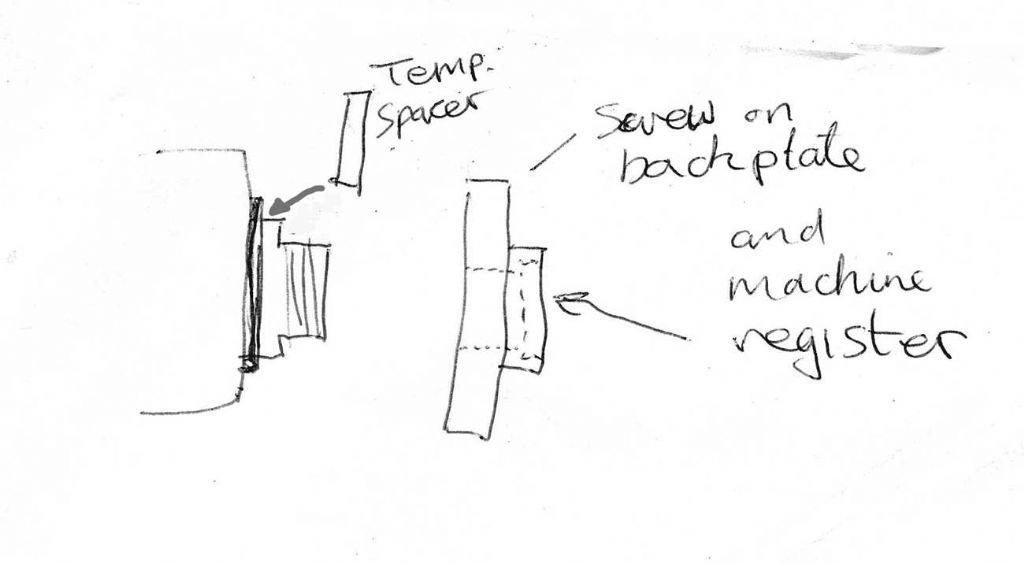 Temp.
Spacer
Screw on
backplate
and
machine
register